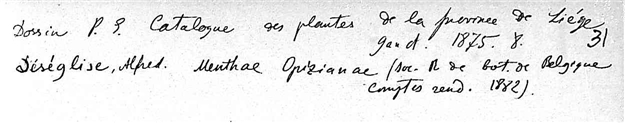 Dossin P. E. Catalogue des plantes de la province de Liége
Gand. 1875. 8. 31
Déséglise, Alfred. Menthae Opizianae (Soc. R. de bot. de Belgique
comptes rend. 1882).